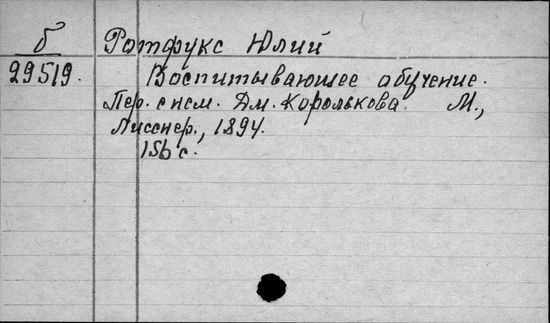 б
29519.
Ротфукс Юлий
Воспитывающее обучение.
Пер. с нем. Дм. Королькова. М.,
Лисснер., 1894.
156 с.